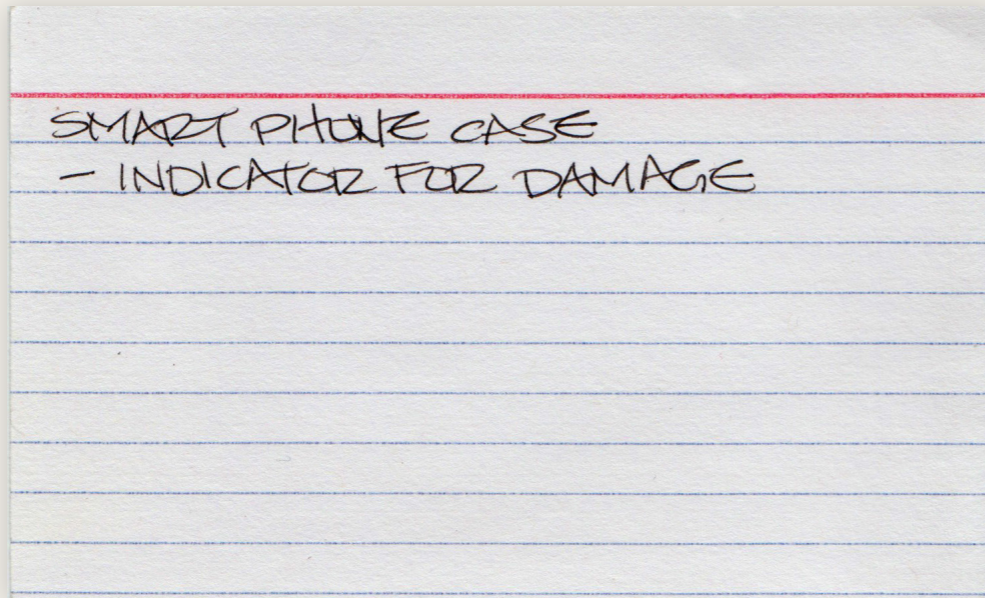 SMART PHONE CASE
- INDICATOR FOR DAMAGE